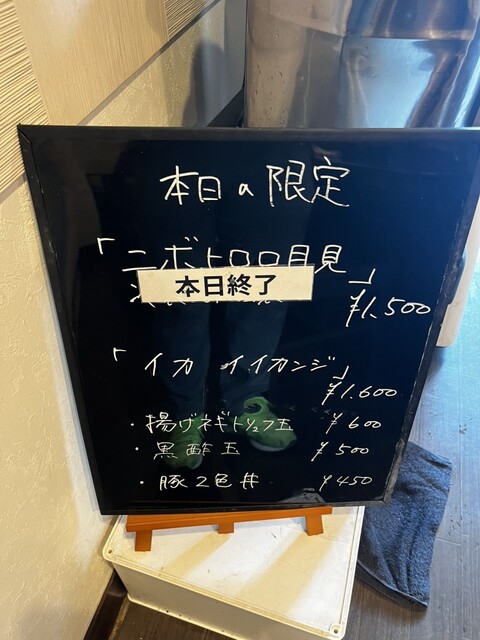 本日の限定
「ニボトロロ月見
本日終了
」
¥1,500
「イカ イイカンジ」
¥1,600
・揚げネギトリュフ玉 ¥600
・黒酢玉 ¥500
・豚2色丼 ¥450